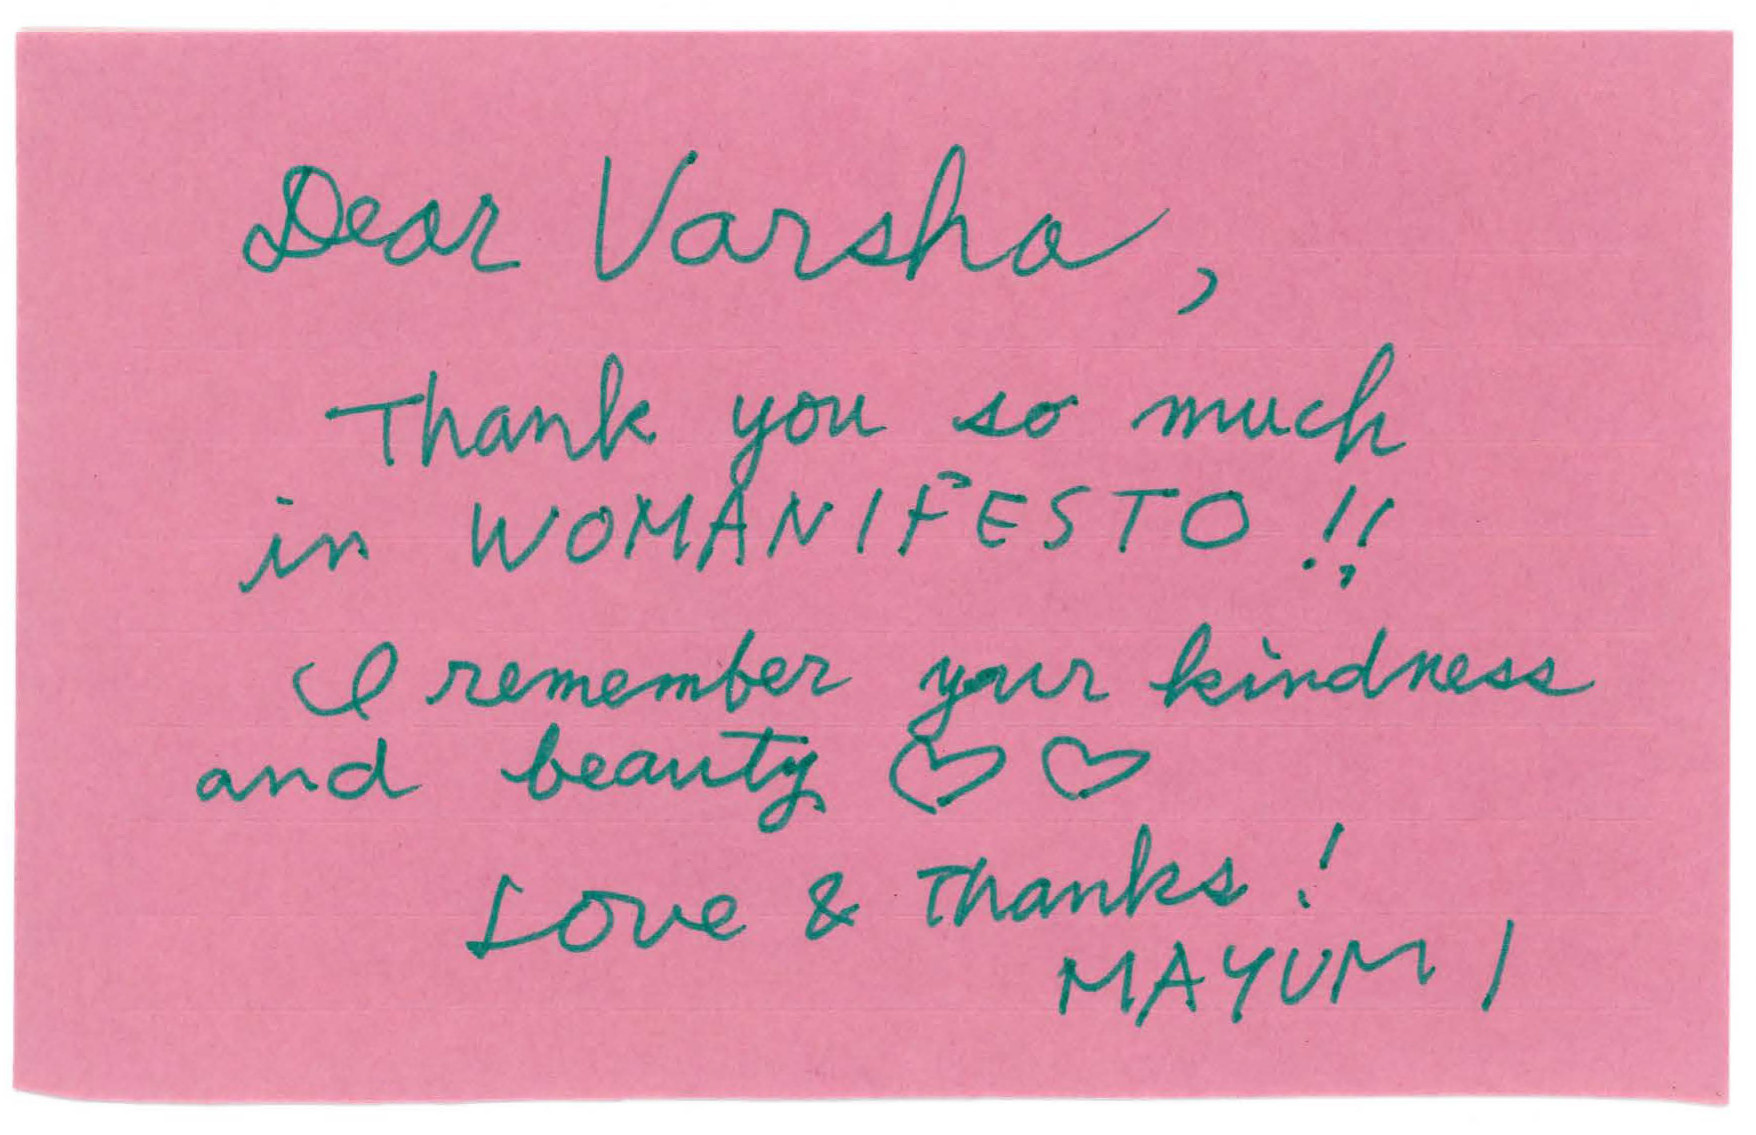 Dear Varsha,
Thank you so much
in WOMANIFESTO!!
I remember your kindness
and beauty ♡ ♡
Love & Thanks!
MAYUMI